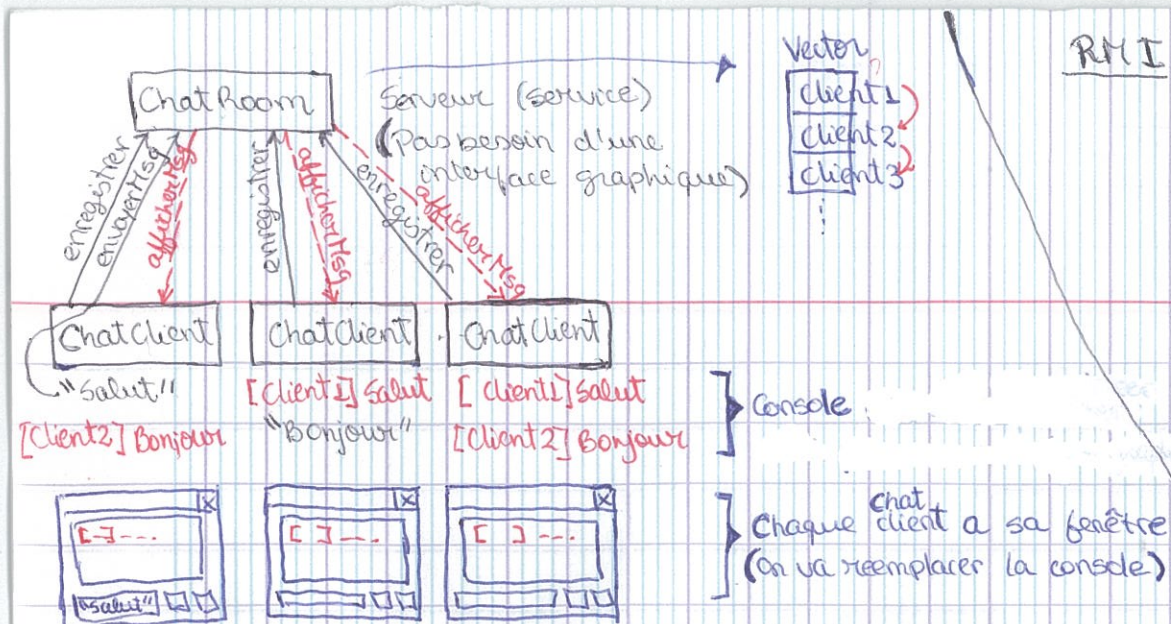 RMI
Vector
ChatRoom
Serveur (service)
(Pas besoin d'une
interface graphique)
client1
client2
client3
enregistrer
envoyerMsg
afficherMsg
enregistrer
afficherMsg
enregistrer
afficherMsg
ChatClient
ChatClient
ChatClient
"Salut"
[Client1] Salut
[Client1] Salut
[Client2] Bonjour
"Bonjour"
[Client2] Bonjour
Console
[-]---.
[ ]---.
[ ]---.
"salut"
X
X
X
Chaque chat client a sa fenêtre
(on va reemplacer la console)